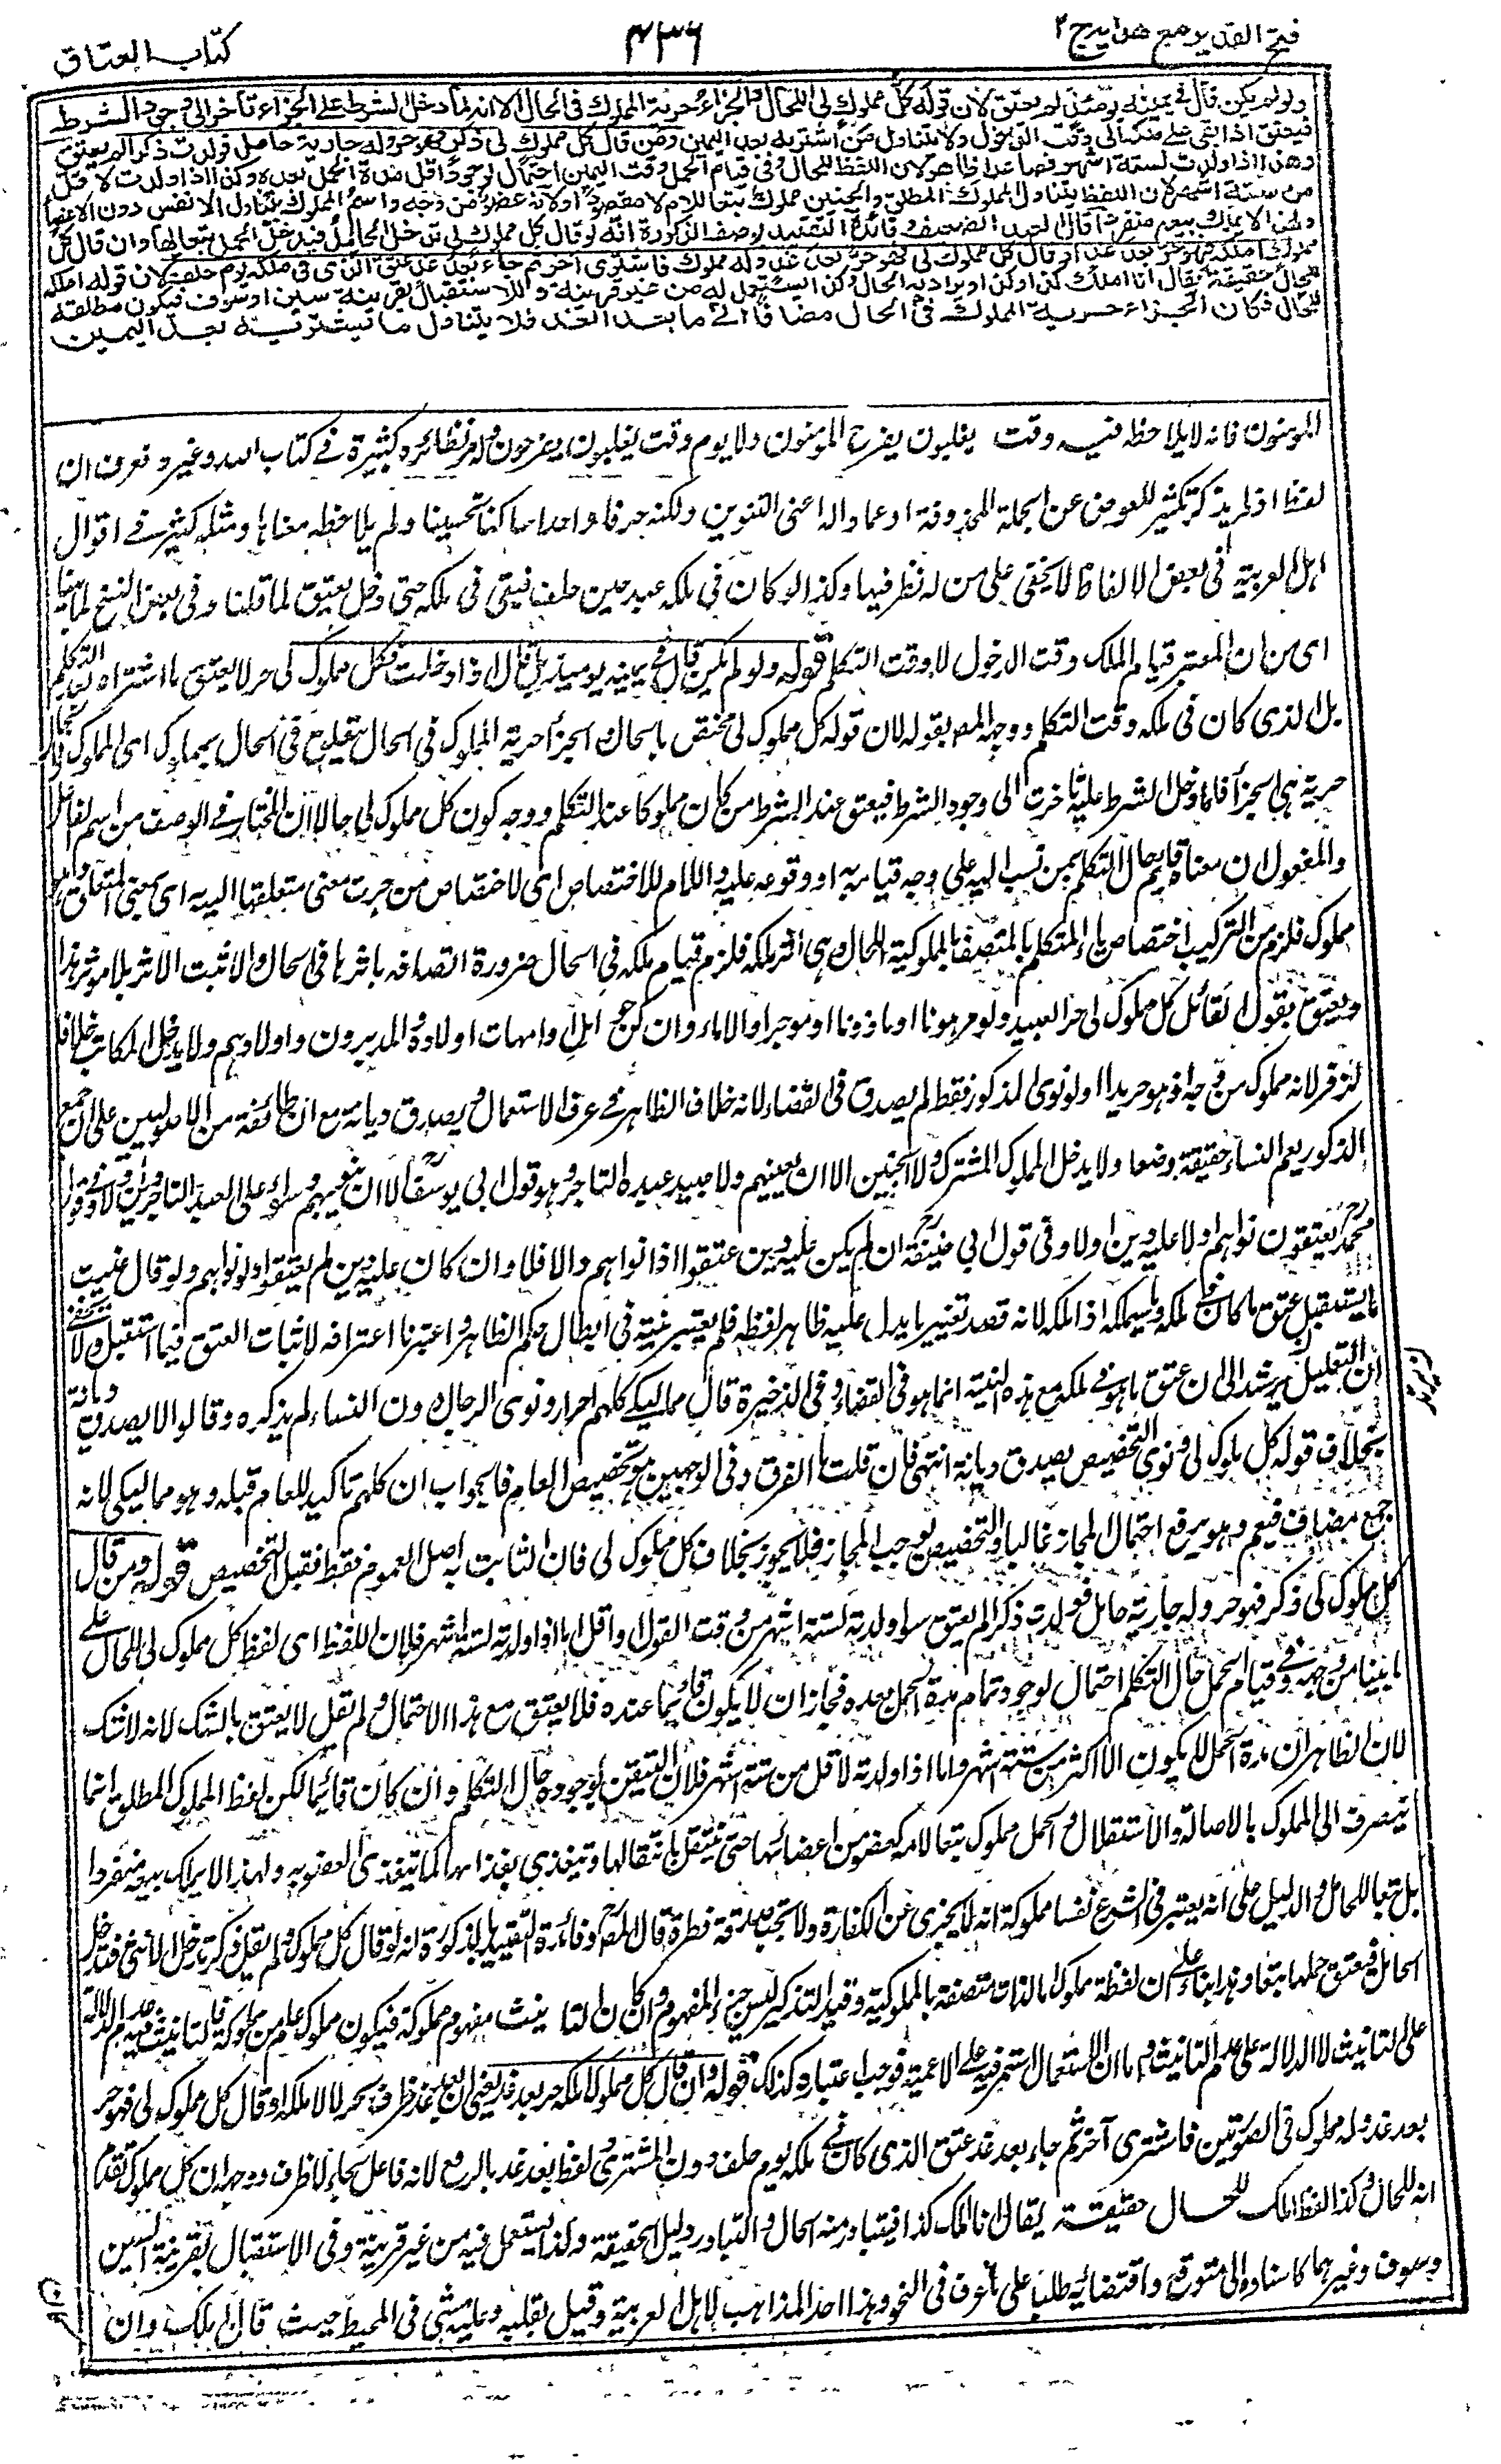 فتح القدير مع هدايه ج ٢
٤٣٦
كتاب العتاق
ولو لم يكن قال في يمينه يومئذ لم يعتق لان قوله كل مملوك لي للحال والجزاء حرية المملوك في الحال الا انه لما دخل الشرط على الجزاء تأخر الى وجود الشرط
فيعتق اذا بقي على ملكه الى وقت الدخول ولا يتناول من اشتريه بعد اليمين ومن قال كل مملوك لي ذكر فهو حر وله جارية حامل فولدت ذكرا لم يعتق
وهذا اذا ولدت لستة اشهر فصاعدا ظاهر لان اللفظ للحال وفي قيام الحمل وقت اليمين احتمال لوجود اقل مدة الحمل بعده وكذا اذا ولدت لاقل
من ستة اشهر لان اللفظ يتناول المملوك المطلق والجنين مملوك تبعا للام لا مقصودا ولانه عضو من وجه واسم المملوك يتناول الانفس دون الاعضاء
ولهذا لا يملك بيعه منفردا قال العبد الضعيف وفائدة التقييد لوصف الذكورة انه لو قال كل مملوك لي تدخل الحامل فيدخل الحمل تبعا لها وان قال كل
مملوك املكه فهو حر بعد غد او قال كل مملوك لي فهو حر بعد غد وله مملوك فاشترى آخر ثم جاء بعد غد عتق الذي في ملكه يوم حلف لان قوله املكه
للحال حقيقة يقال انا املك كذا وكذا ويراد به الحال وكذا يستعمل له من غير قرينة وللاستقبال بقرينة سين او سوف فيكون مطلقه
للحال فكان الجزاء حرية المملوك في الحال مضافا الى ما بعد الغد فلا يتناول ما يشتريه بعد اليمين
المومنون فانه لا يلاحظ فيه وقت يغلبون يفرح المومنون ولا يوم وقت يغلبون يفرحون ونظائره كثيرة في كتاب الله وغيره فعرف ان
لفظ اذ لم يذكر تكثير للعوض عن الجملة المحذوفة او عمادا له اعنى التنوين ولكنه حرفا واحدا ساكنا تحسينا ولم يلاحظ معناها ومثله كثير في اقوال
اهل العربية في بعض الالفاظ لا يخفى على من له نظر فيها وكذا لو كان في ملكه عبد حين حلف فبقي في ملكه حتى دخل يعتق لما قلنا وفي بعض النسخ لما بينا
اى من ان المعتبر قيام الملك وقت الدخول لا وقت التكلم قوله ولو لم يكن قال في يمينه يومئذ بل قال اذا دخلت فكل مملوك لي حر لا يعتق ما اشتراه بعد التكلم
بل الذى كان في ملكه وقت التكلم ووجهه المص بقوله لان قوله كل مملوك لي مختص بالحال والجزأ حرية المملوك في الحال
حرية هي الجزأ فلما دخل الشرط عليه تأخرت الى وجود الشرط فيعتق عند الشرط من كان مملوكا عند التكلم ووجه كون كل مملوك لي حالا ان المختار في الوصف من اسم الفاعل
والمفعول ان معناه قائم حال التكلم بمن نسب اليه على وجه قيامه به او وقوعه عليه واللام للاختصاص اى لاختصاص من جرت معنى متعلقها اليه اى بمعنى المتعلق
مملوك فلزم من التركيب اختصاص ياء المتكلم بالمتصف بالمملوكية للحال وهى اثر ملكه فلزم قيام ملكه في الحال ضرورة اتصافه باثرها في الحال والا ثبت الاثر بلا موثر هذا
ويعتق بقول القائل كل مملوك لي حر العبيد ولو مرهونا او ماذونا او موجرا والاماء وان كن حوامل وامهات اولاده والمدبرون واولادهم ولا يدخل المكاتب خلافا
لزفر لانه مملوك من وجه اذ هو حر يدا ولو نوى الذكور فقط لم يصدق في القضاء لانه خلاف الظاهر في عرف الاستعمال ويصدق ديانة مع ان طائفة من الاصوليين على ان جمع
الذكور يعم النساء حقيقة وضعا ولا يدخل المملوك المشترك ولا الجنين الا ان يعينهم ولا عبيد عبده التاجر وهو قول ابي يوسف الا ان ينويهم سواء على العبد التاجر دين اولا وفي قول
محمد يعتقون نواهم اولا عليه دين اولا وفي قول ابي حنيفة ان لم يكن عليه دين عتقوا اذا نواهم والا فلا وان كان عليه دين لم يعتقوا ولو نواهم ولو قال عنيت
ما يستقبل عتق ما كان في ملكه وما سيملكه اذا ملكه لانه قصد تغيير ما يدل عليه ظاهر لفظه فلم يعتبر نيته في ابطال حكم الظاهر واعتبرنا اعترافه لاثبات العتق فيما استقبل ولا يخفى
ان التعليل يرشد الى ان عتق ما هو في ملكه مع هذه النية انما هو في القضاء وفي الذخيرة قال مماليكي كلهم احرار ونوى الرجال دون النساء لم يذكره وقالوا لا يصدق ديانة
بخلاف قوله كل مملوك لي ونوى التخصيص يصدق ديانة انتهى فان قلت ما الفرق وفي الوجهين هو تخصيص العام فالجواب ان كلهم تاكيد للعام قبله وهو مماليكي لانه
جمع مضاف فيعم وهو يرفع احتمال المجاز غالبا والتخصيص يوجب المجاز فلا يجوز بخلاف كل مملوك لي فان الثابت به اصل العموم فقط فقبل التخصيص قوله ومن قال
كل مملوك لي ذكر فهو حر وله جارية حامل فولدت ذكرا لم يعتق سواء ولدته لستة اشهر من وقت القول او اقل اما اذا ولدته لستة اشهر فلان اللفظ اى لفظ كل مملوك لي للحال على
ما بينا من وجهه وفي قيام الحمل حال التكلم احتمال لوجود تمام مدة الحمل بعده فجاز ان لا يكون قائما عنده فلا يعتق مع هذا الاحتمال ولم نقل لا يعتق بالشك لانه لا شك
لان الظاهر ان مدة الحمل لا يكون الا اكثر من ستة اشهر واما اذا ولدته لاقل من ستة اشهر فلان التيقن بوجوده حال التكلم وان كان قائما لكن لفظ المملوك المطلق انما
ينصرف الى المملوك بالاصالة والاستقلال والحمل مملوك تبعا لامه كعضو من اعضائها حتى ينتقل بانتقالها ويتغذى بغذائها كما يتغذى العضو به ولهذا لا يملك بيعه منفردا
بل تبعا للحامل والدليل على انه يعتبر في الشرع نفسا مملوكة انه لا يجزى عن الكفارة ولا تجب صدقة فطرة قال المص وفائدة التقييد بالذكورة انه لو قال كل مملوك ولم يقل ذكر يدخل الانثى فتدخل
الحامل فيعتق حملها تبعا وهذا بناء على ان لفظة مملوك الذات متصفة بالمملوكية وقيد التذكير ليس جزء المفهوم وان كان التانيث مفهوم مملوكة فيكون مملوك اعم من مملوكة فالتانيث فيه عدم الدلالة
على التانيث لا الدلالة على عدم التانيث واما ان الاستعمال استمر فيه على الاعمية فوجب اعتباره كذلك قوله وان قال كل مملوك املكه حر بعد غد يعنى ان بعد غد ظرف لحر لا لاملكه او قال كل مملوك لي فهو حر
بعد غد وله مملوك في الصورتين فاشترى آخر ثم جاء بعد غد عتق الذى كان في ملكه يوم حلف دون المشترى ولفظ بعد غد بالرفع لانه فاعل جاء لا ظرف ووجهه ان كل مملوك تقدم
انه للحال وكذا لفظ املك للحال حقيقة يقال انا املك كذا فيتبادر منه الحال والتبادر دليل الحقيقة ولذا يستعمل فيه من غير قرينة وفي الاستقبال بقرينة السين
وسوف وغيرهما كاسناده الى متوقع واقتضائه طلبا على ما عرف في النحو وهذا احد المذاهب لاهل العربية وقيل بقلبه وعليه مشى في المحيط حيث قال املك وان